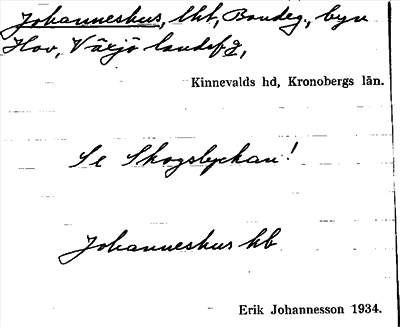 Johanneshus, lht, Bondeg., byn
Hov, Växjö landsfg,
Kinnevalds hd, Kronobergs län.
Se Skogslyckan!
Johanneshus hb
Erik Johannesson 1934.